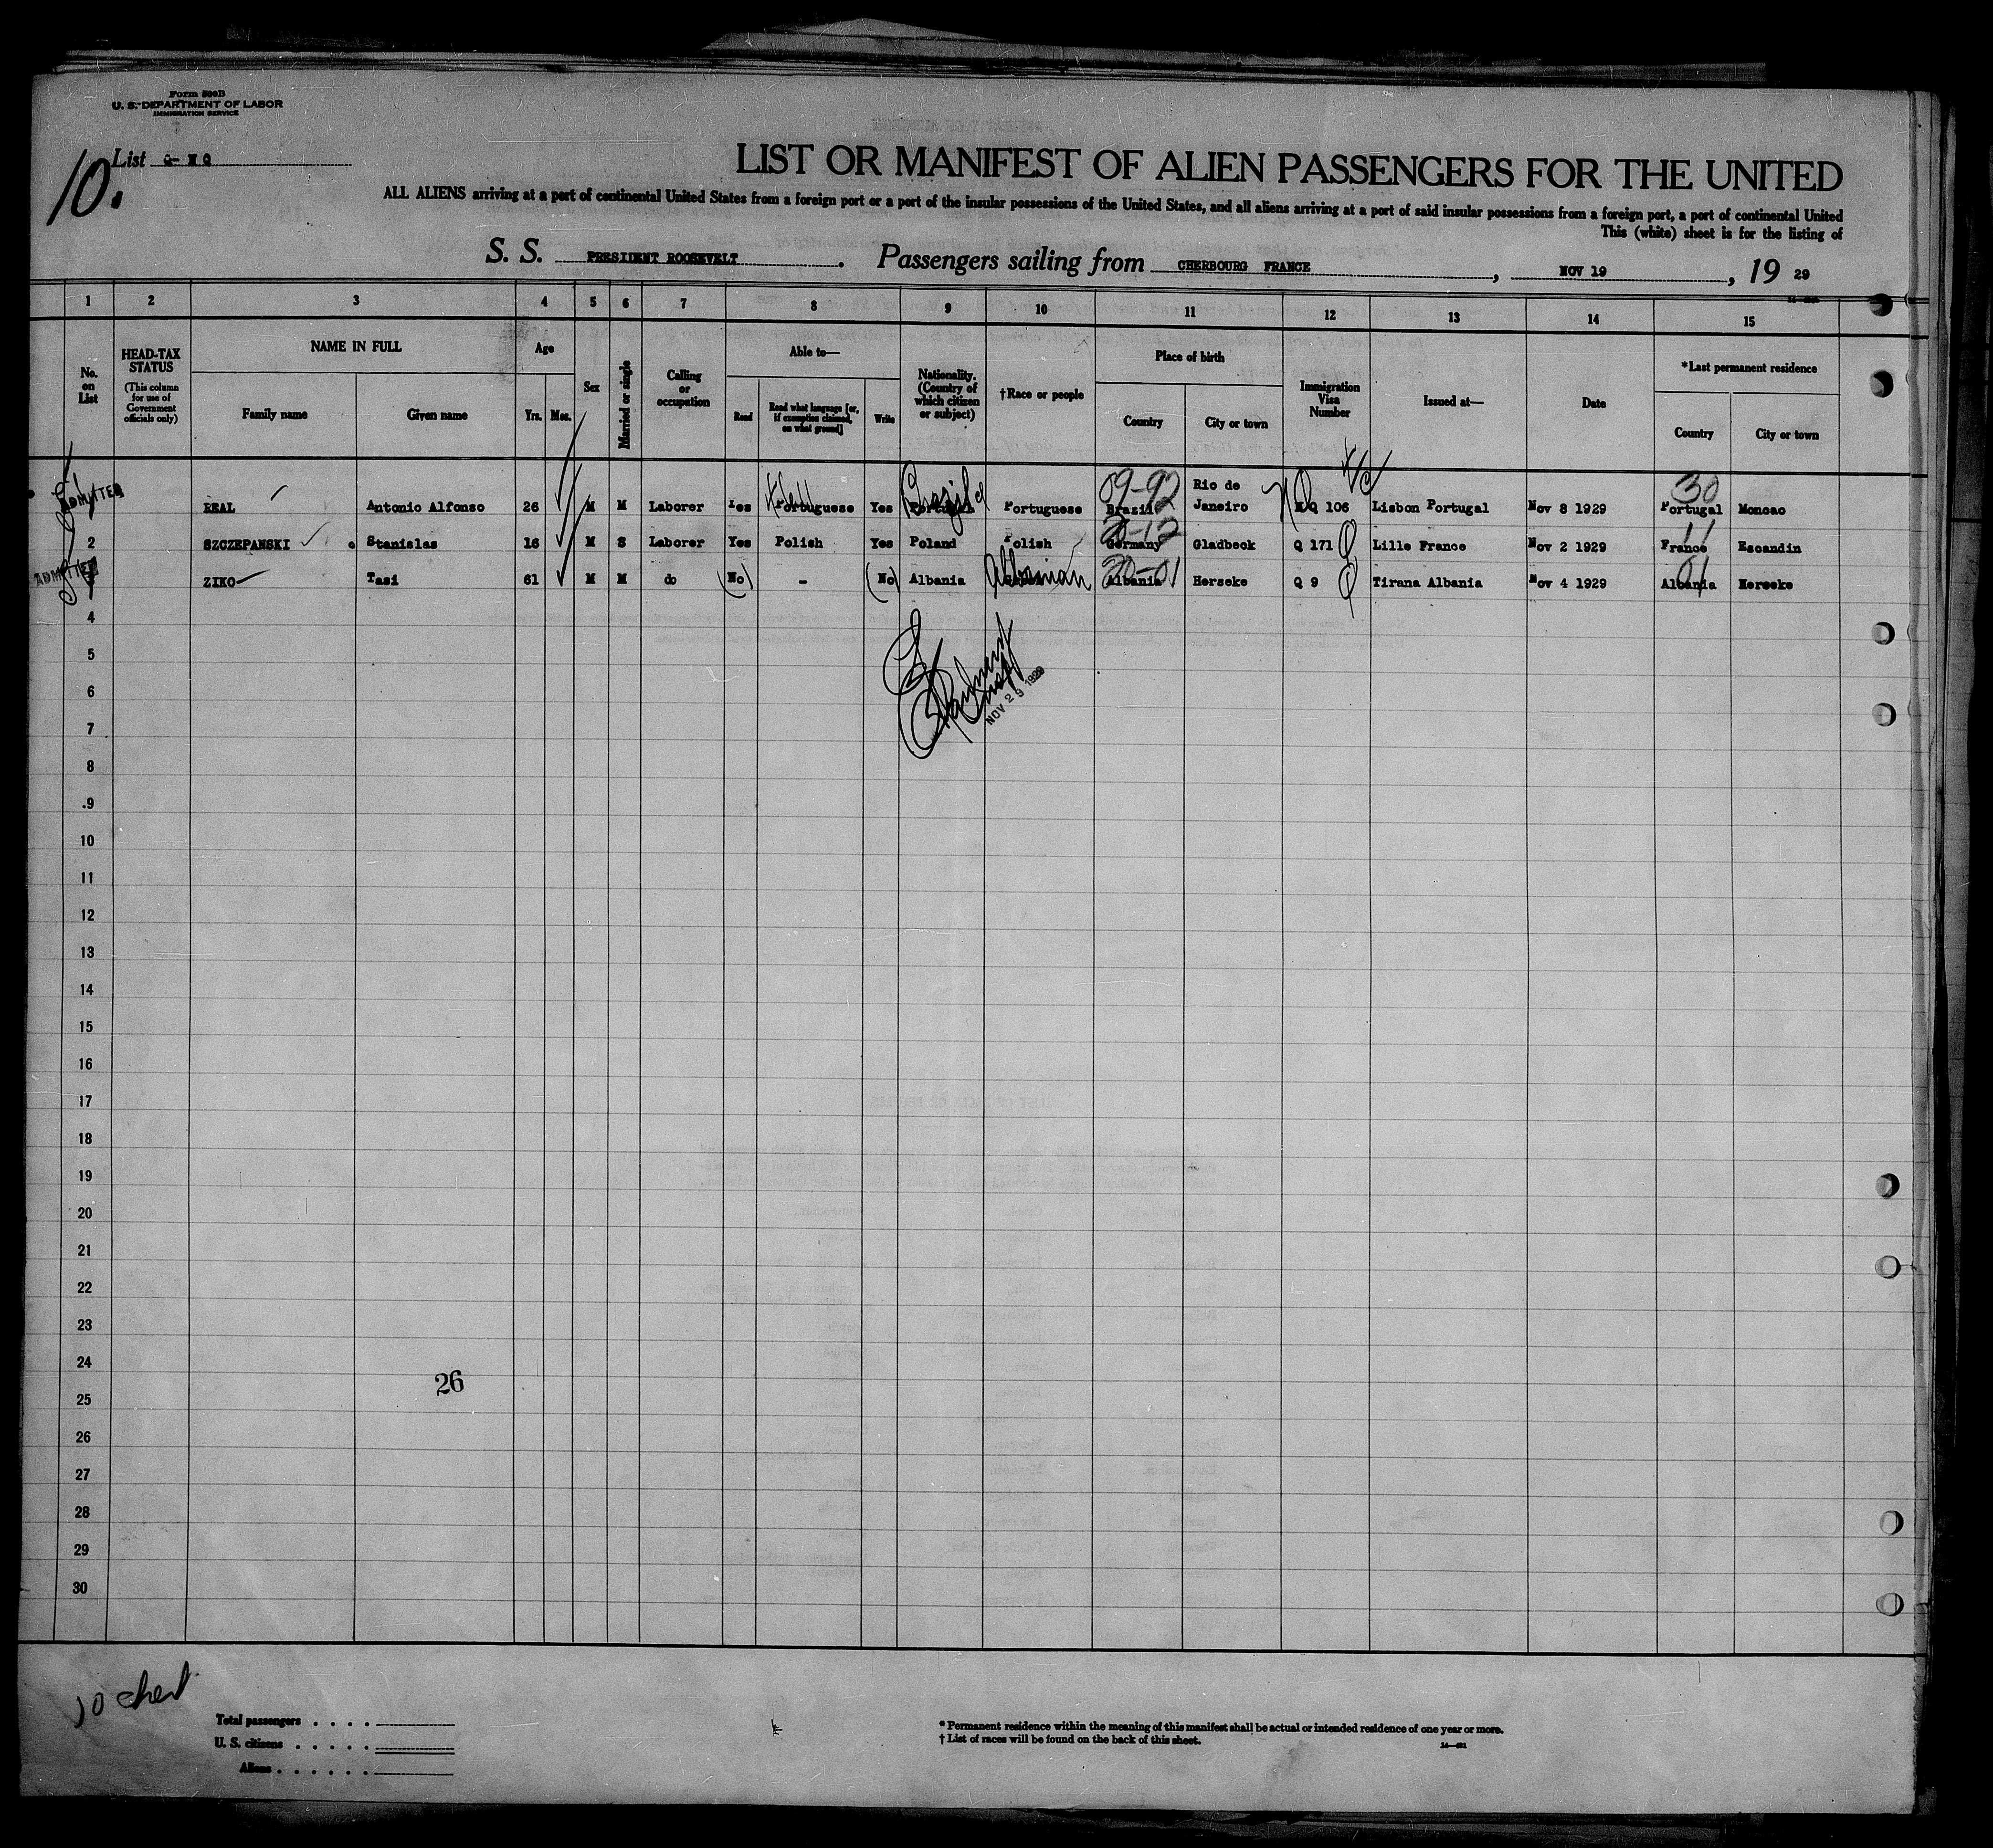 Form 500B
U. S. DEPARTMENT OF LABOR
IMMIGRATION SERVICE
List Q- N Q
10.
LIST OR MANIFEST OF ALIEN PASSENGERS FOR THE UNITED
ALL ALIENS arriving at a port of continental United States from a foreign port or a port of the insular possessions of the United States, and all aliens arriving at a port of said insular possessions from a foreign port, a port of continental United
This (white) sheet is for the listing of
S. S. PRESIDENT ROOSEVELT. Passengers sailing from CHERBOURG FRANCE, NOV 19, 19 29
1 2 3 4 5 6 7 8 9 10 11 12 13 14 15
No. on List
HEAD-TAX STATUS
(This column for use of Government officials only)
NAME IN FULL
Family name Given name
Age
Yrs. Mos.
Sex
Married or single
Calling or occupation
Able to—
Read
Read what language [or, if exemption claimed, on what ground]
Write
Nationality. (Country of which citizen or subject)
†Race or people
Place of birth
Country City or town
Immigration Visa Number
Issued at—
Date
*Last permanent residence
Country City or town
ADMITTED REAL Antonio Alfonso 26 M M Laborer Yes Portuguese Yes Portugal Brazil Portuguese 09-92 Brazil Rio de Janeiro NQ 106 Lisbon Portugal Nov 8 1929 30 Portugal Moncao
2 SZCZEPANSKI Stanislas 16 M S Laborer Yes Polish Yes Poland Polish Germany Gladbeck Q 171 Lille France Nov 2 1929 11 France Escandin
ADMITTED ZIKO Tasi 61 M M do (No) - (No) Albania Albanian 20-01 Albania Herseke Q 9 Tirana Albania Nov 4 1929 01 Albania Herseke
4
5
6
NOV 29 1929
7
8
9
10
11
12
13
14
15
16
17
18
19
20
21
22
23
24
26
25
26
27
28
29
30
Total passengers . . . .
U. S. citizens . . . . .
Aliens . . . . . .
* Permanent residence within the meaning of this manifest shall be actual or intended residence of one year or more.
† List of races will be found on the back of this sheet.